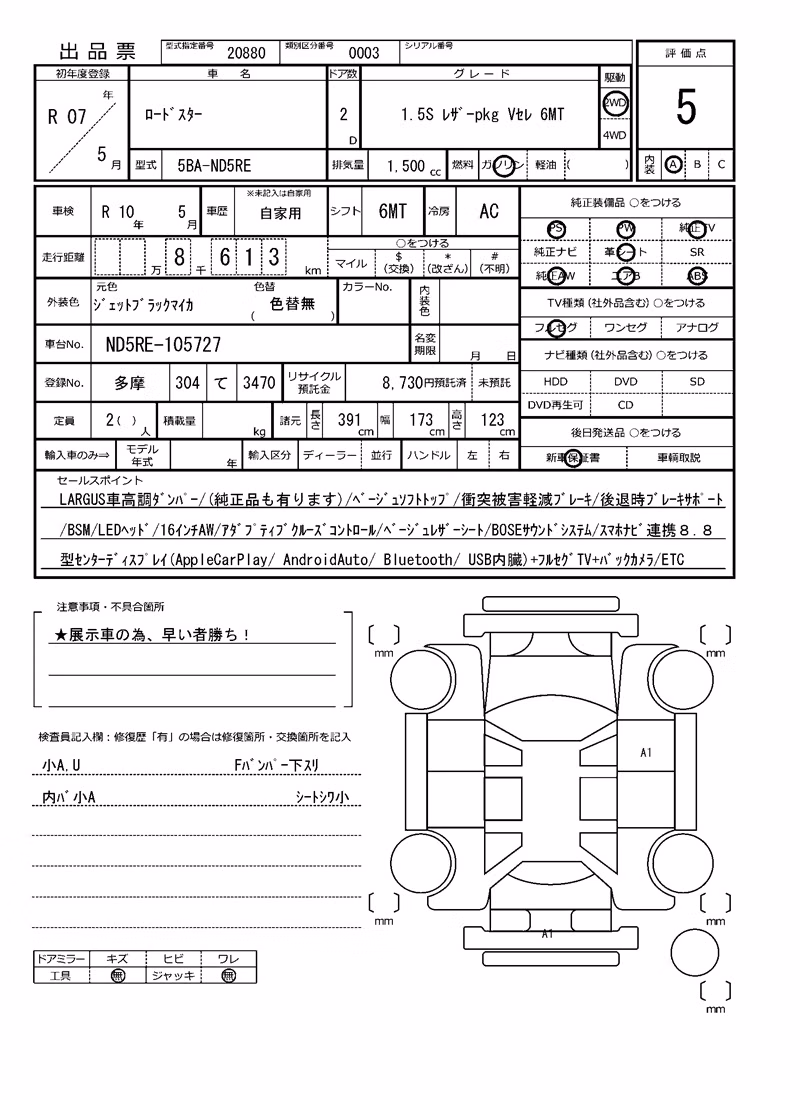 出品票 型式指定番号 20880 類別区分番号 0003 シリアル番号
評価点
5
内装 A B C
初年度登録 車名 ドア数 グレード 駆動
R 07 年 5 月 ﾛｰﾄﾞｽﾀｰ 2 D 1.5S ﾚｻﾞｰpkg Vｾﾚ 6MT 2WD
4WD
型式 5BA-ND5RE 排気量 1,500 cc 燃料 ガソリン 軽油 ( )
車検 R 10 年 5 月 車歴 ※未記入は自家用 自家用 シフト 6MT 冷房 AC
走行距離 万 8 千 6 1 3 km ○をつける
マイル $ (交換) * (改ざん) # (不明)
外装色 元色 ｼﾞｪｯﾄﾌﾞﾗｯｸﾏｲｶ 色替 ( 色替無 ) カラーNo. 内装色
車台No. ND5RE-105727 名変期限 月 日
登録No. 多摩 304 て 3470 リサイクル預託金 8,730円預託済 未預託
定員 2( ) 人 積載量 kg 諸元 長さ 391 cm 幅 173 cm 高さ 123 cm
輸入車のみ⇒ モデル年式 年 輸入区分 ディーラー 並行 ハンドル 左 右
純正装備品 ○をつける
PS PW 純正TV
純正ナビ 革シート SR
純正AW エアB ABS
TV種類(社外品含む) ○をつける
フルセグ ワンセグ アナログ
ナビ種類(社外品含む) ○をつける
HDD DVD SD
DVD再生可 CD
後日発送品 ○をつける
新車保証書 車輌取説
セールスポイント
LARGUS車高調ﾀﾞﾝﾊﾟｰ/(純正品も有ります)/ﾍﾞｰｼﾞｭｿﾌﾄﾄｯﾌﾟ/衝突被害軽減ﾌﾞﾚｰｷ/後退時ﾌﾞﾚｰｷｻﾎﾟｰﾄ
/BSM/LEDﾍｯﾄﾞ/16ｲﾝﾁAW/ｱﾀﾞﾌﾟﾃｨﾌﾞｸﾙｰｽﾞｺﾝﾄﾛｰﾙ/ﾍﾞｰｼﾞｭﾚｻﾞｰｼｰﾄ/BOSEｻｳﾝﾄﾞｼｽﾃﾑ/ｽﾏﾎﾅﾋﾞ連携８.８
型ｾﾝﾀｰﾃﾞｨｽﾌﾟﾚｲ(AppleCarPlay/ AndroidAuto/ Bluetooth/ USB内臓)+ﾌﾙｾｸﾞTV+ﾊﾞｯｸｶﾒﾗ/ETC
注意事項・不具合箇所
★展示車の為、早い者勝ち！
検査員記入欄：修復歴「有」の場合は修復箇所・交換箇所を記入
小A,U Fﾊﾞﾝﾊﾟｰ下ｽﾘ
内ﾊﾞ小A ｼｰﾄｼﾜ小
ドアミラー キズ ヒビ ワレ
工具 無 ジャッキ 無
mm mm
A1
mm mm
A1
mm